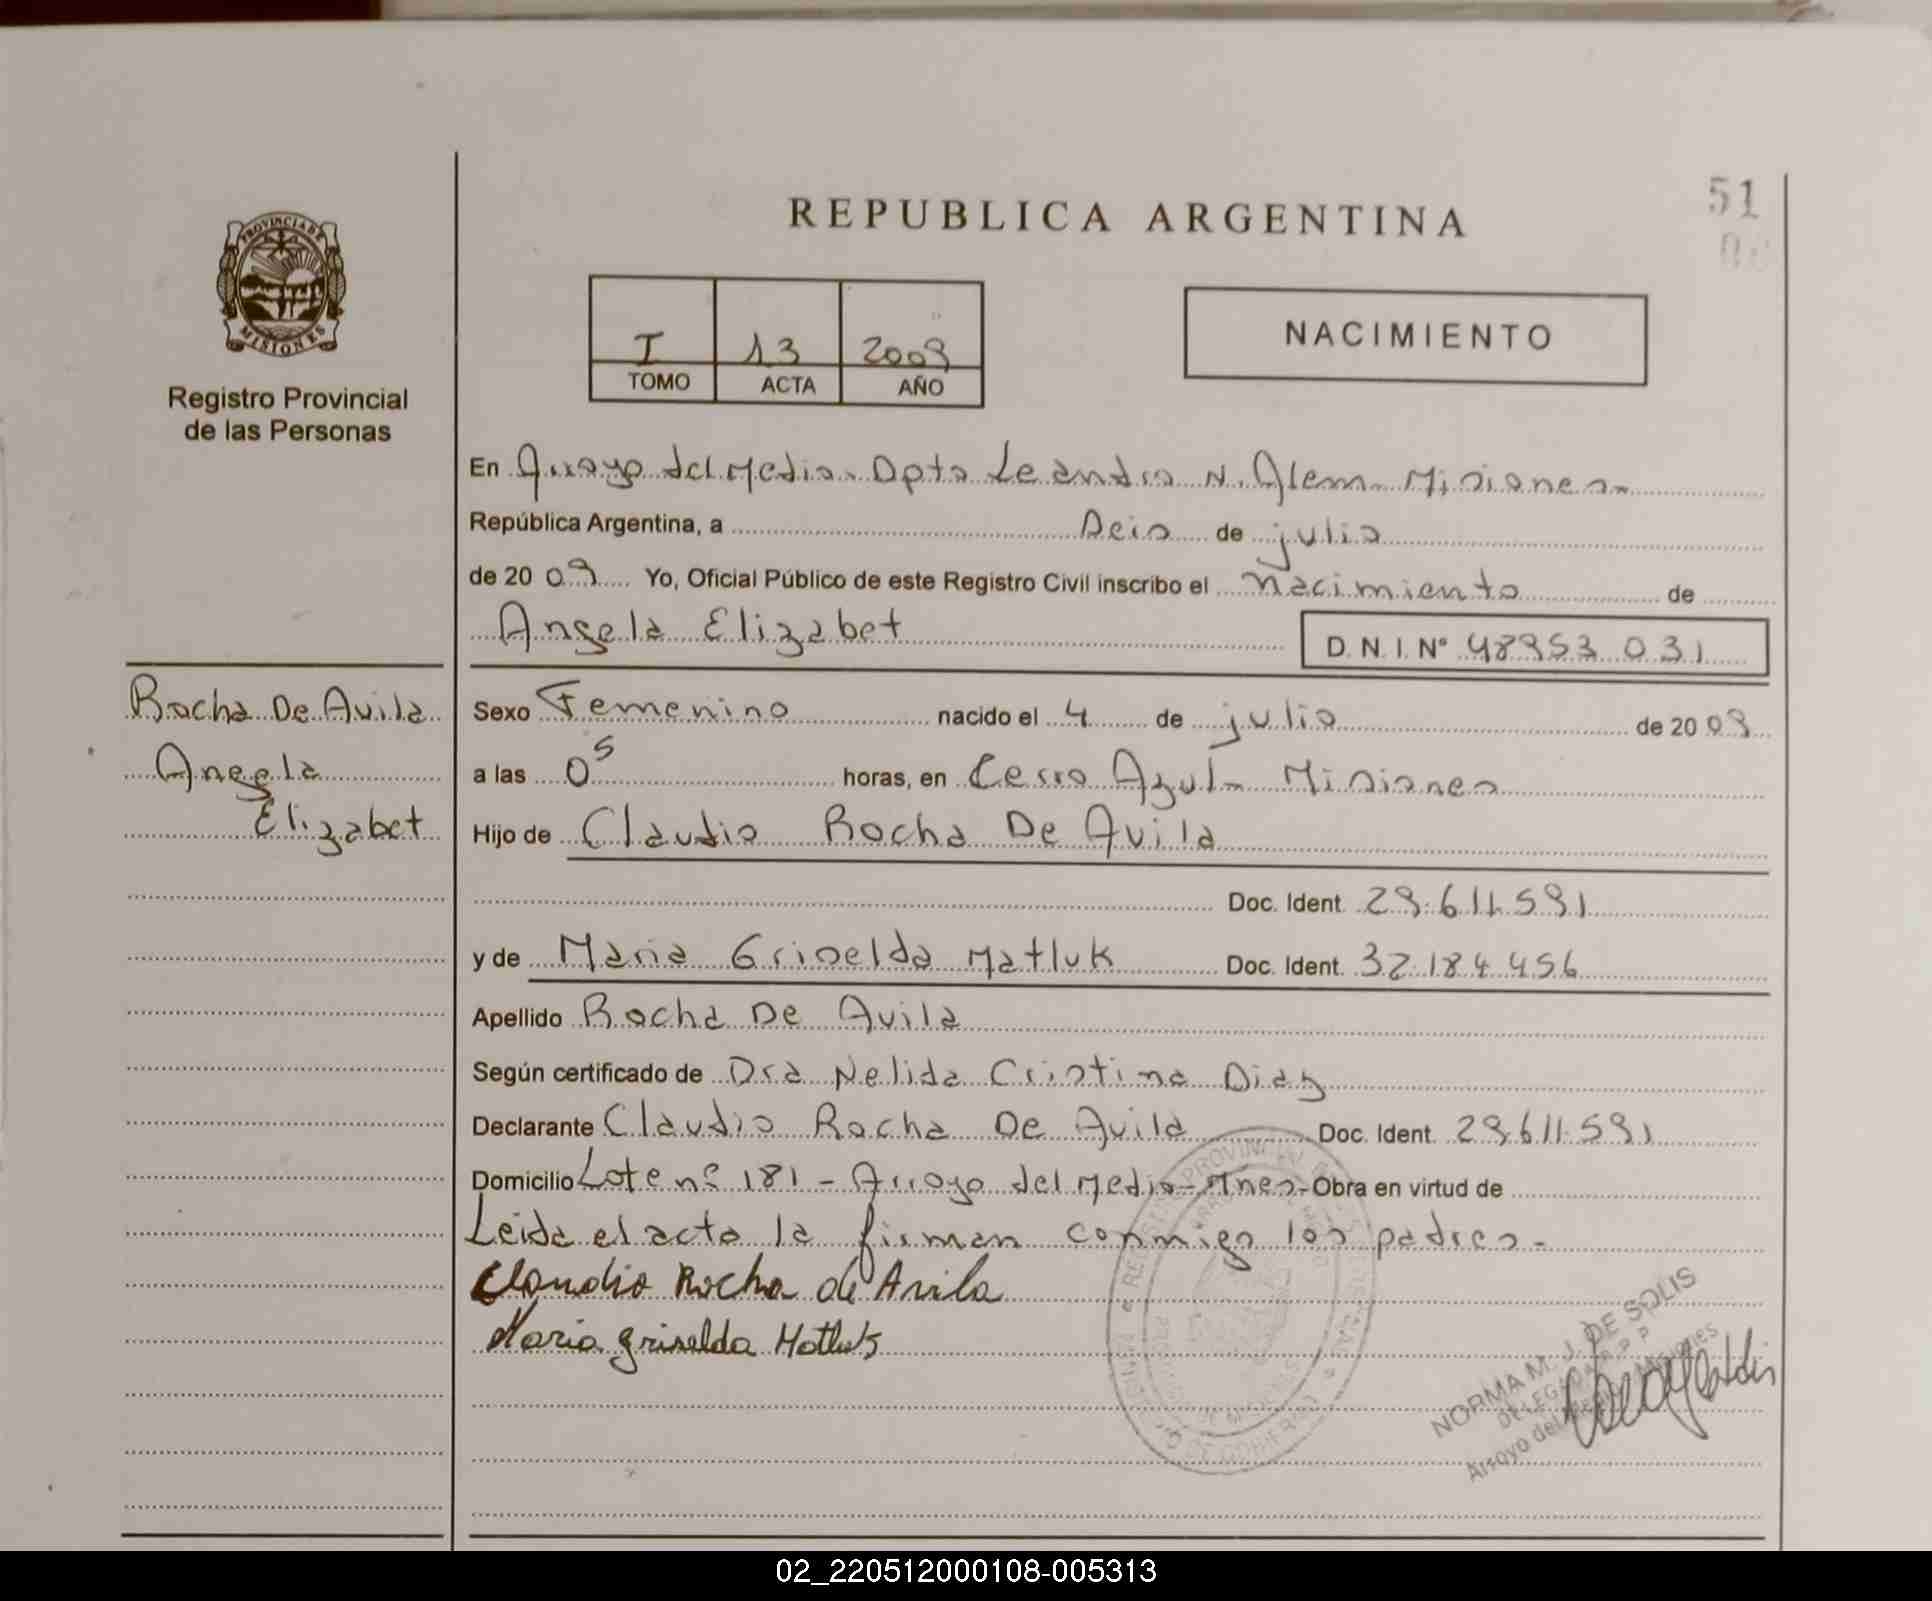 REPUBLICA ARGENTINA
51
PROVINCIA DE
MISIONES
Registro Provincial
de las Personas
I 13 2009
TOMO ACTA AÑO
NACIMIENTO
En Arroyo del Medio. Dpto Leandro N. Alem - Misiones -
República Argentina, a Seis de julio
de 20 09 Yo, Oficial Público de este Registro Civil inscribo el Nacimiento de
Angela Elizabet
D. N. I. N° 48953 031
Rocha De Avila
Angela
Elizabet
Sexo Femenino nacido el 4 de julio de 20 09
a las 0⁵ horas, en Cerro Azul - Misiones
Hijo de Claudio Rocha De Avila
Doc. Ident. 29.611.591
y de Maria Griselda Matluk Doc. Ident. 32.184.456
Apellido Rocha De Avila
Según certificado de Dra Nelida Cristina Diaz
Declarante Claudio Rocha De Avila Doc. Ident. 29.611.591
Domicilio Lote n° 181 - Arroyo del Medio - Mnes - Obra en virtud de
Leida el acta la firman conmigo los padres -
Claudio Rocha de Avila
Maria Griselda Matluk
NORMA M. J. DE SOLIS
DELEGADA R.P.P.
Arroyo del Medio Misiones
02_220512000108-005313